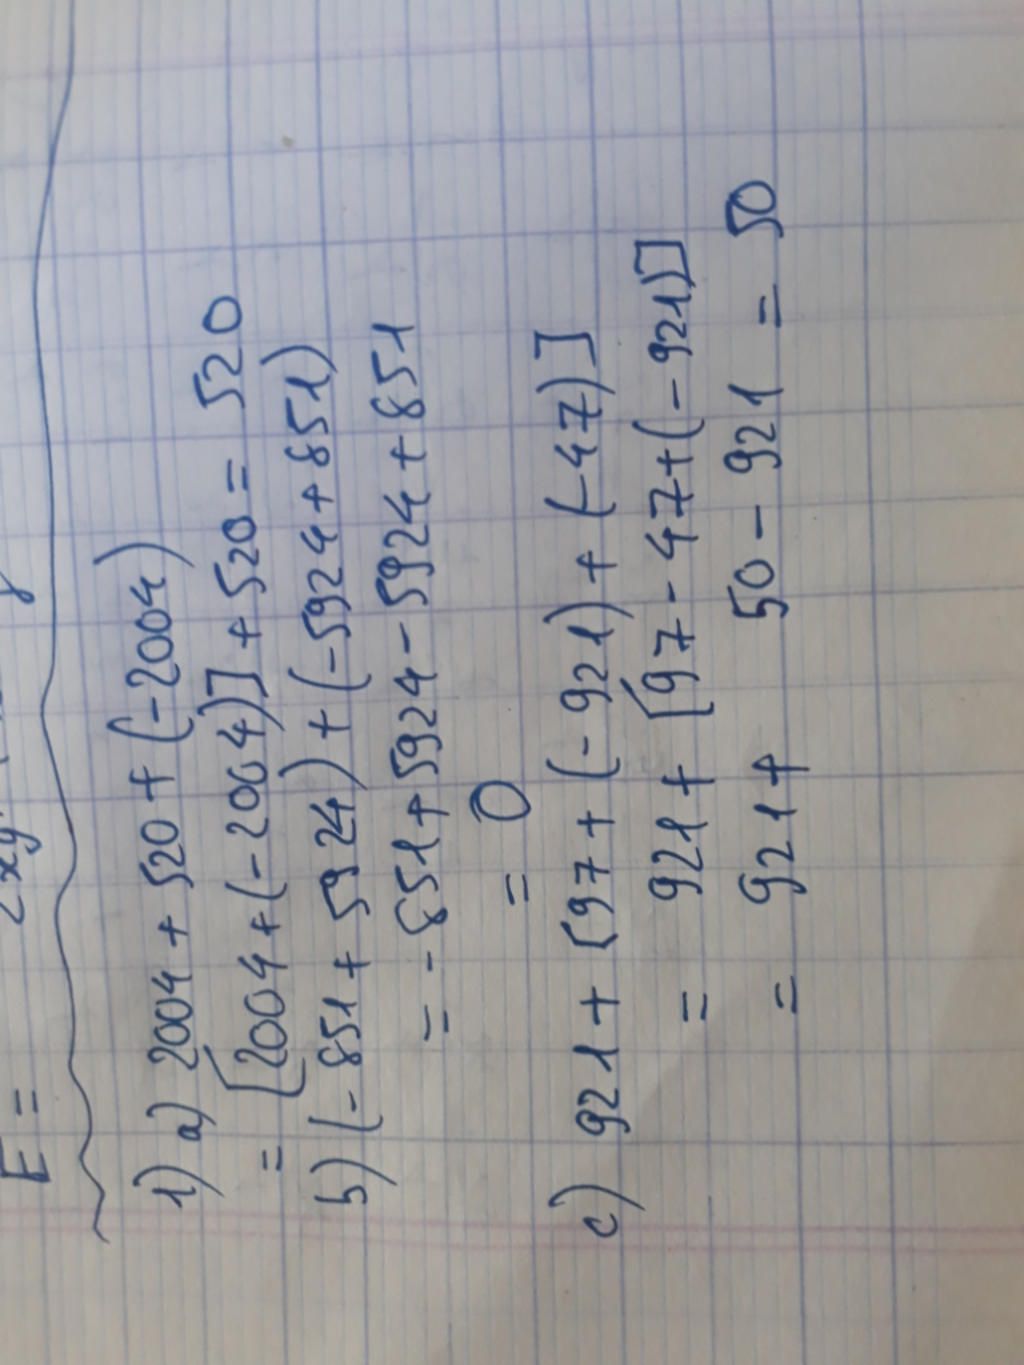 E =
1) a) 2004 + 520 + (-2004)
= [2004 + (-2004)] + 520 = 520
b) (-851 + 5924) + (-5924 + 851)
= -851 + 5924 - 5924 + 851
= 0
c) 921 + [97 + (-921) + (-47)]
= 921 + [97 - 47 + (-921)]
= 921 + 50 - 921 = 50